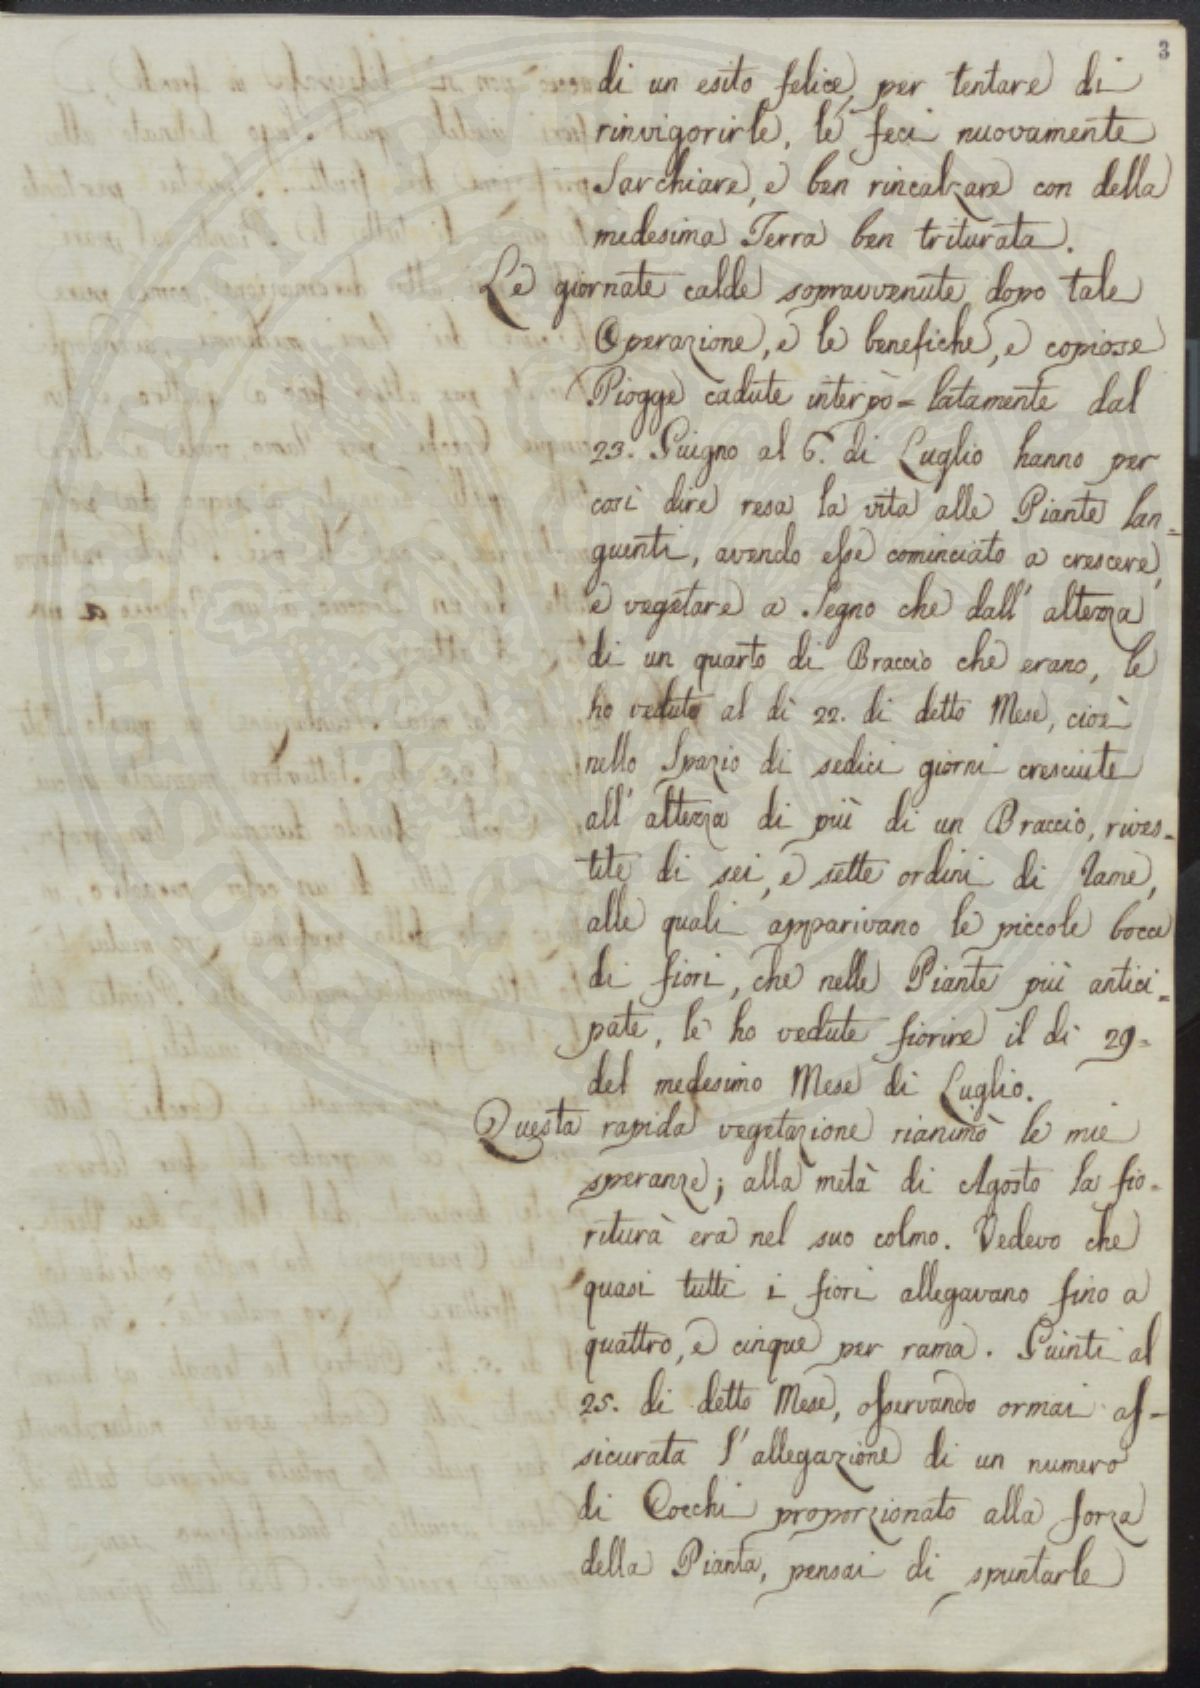 3
di un esito felice, per tentare di
rinvigorirle, le feci nuovamente
Sarchiare, e ben rincalzare con della
medesima Terra ben triturata.
Le giornate calde sopravvenute dopo tale
Operazione, e le benefiche, e copiose
Piogge cadute interpò=latamente dal
23. Guigno al 6. di Luglio hanno per
così dire resa la vita alle Piante lan=
guenti, avendo esse cominciato a crescere,
e vegetare a Segno che dall' altezza
di un quarto di Braccio che erano, le
ho vedute al dì 22. di detto Mese, cioè
nello Spazio di sedici giorni cresciute
all' altezza di più di un Braccio, rives=
tite di sei, e sette ordini di Rame,
alle quali apparivano le piccole bocce
di fiori, che nelle Piante più antici=
pate, le ho vedute fiorire il dì 29.
del medesimo Mese di Luglio.
Questa rapida vegetazione rianimò le mie
speranze; alla metà di Agosto la fio=
ritura era nel suo colmo. Vedevo che
quasi tutti i fiori allegavano fino a
quattro, e cinque per rama. Guinti al
25. di detto Mese, osservando ormai as=
sicurata l' allegazione di un numero
di Cocchi proporzionato alla forza
della Pianta, pensai di spuntarle